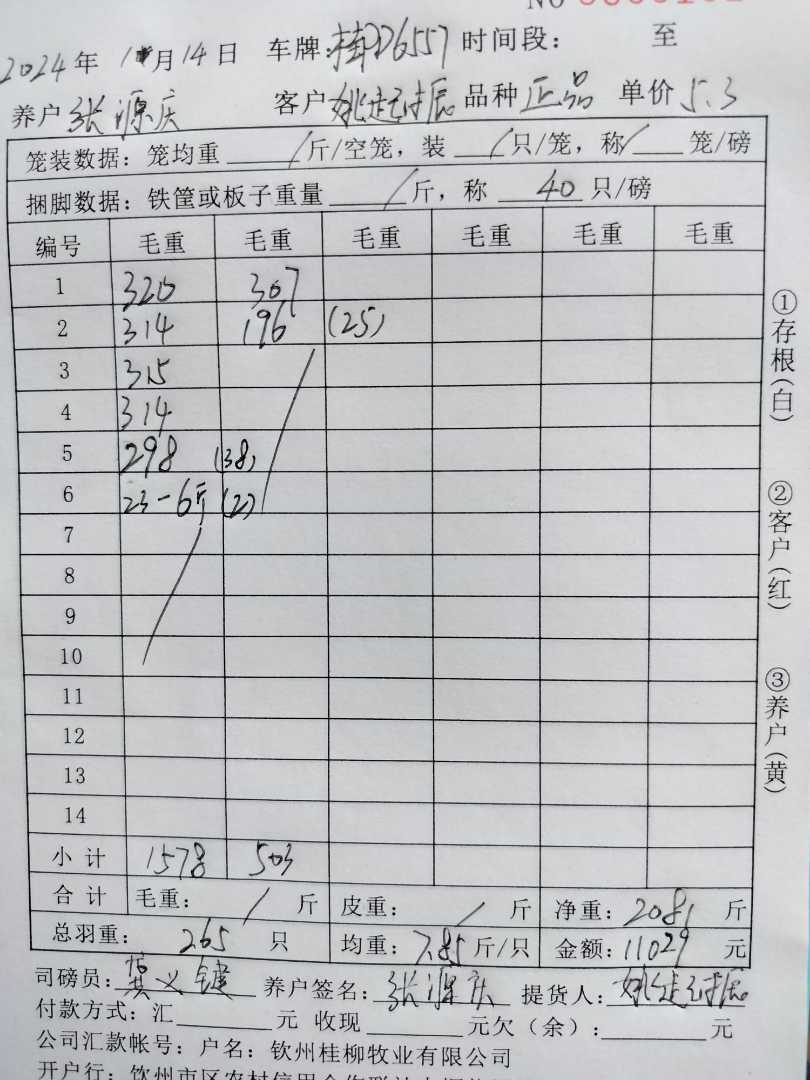 NO
2024年 1 月14日 车牌:桂D26557 时间段: 至
养户 张源庆 客户 姚起振 品种 正品 单价 5.3
笼装数据: 笼均重 / 斤/空笼, 装 / 只/笼, 称 / 笼/磅
捆脚数据: 铁筐或板子重量 / 斤, 称 40 只/磅
编号 毛重 毛重 毛重 毛重 毛重 毛重
1 320 307
2 314 196 (25)
3 315
4 314
5 298 (38)
6 23-6斤 (2)
7
8
9
10
11
12
13
14
小计 1578 503
合计 毛重: / 斤 皮重: / 斤 净重: 2081 斤
总羽重: 265 只 均重: 7.85 斤/只 金额: 11029 元
司磅员: 义键 养户签名: 张源庆 提货人: 姚起振
付款方式: 汇 元 收现 元欠(余): 元
公司汇款帐号: 户名: 钦州桂柳牧业有限公司
开户行: 钦州市区农村信用合作联社
①存根(白)
②客户(红)
③养户(黄)